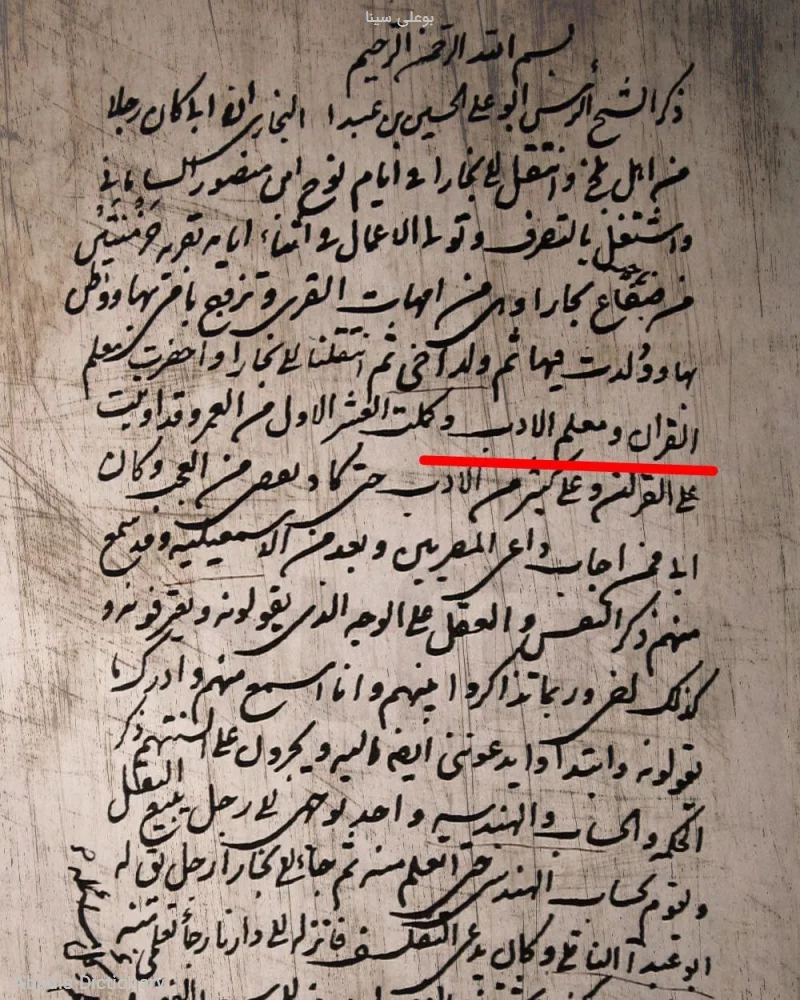 بوعلی سینا
بسم الله الرحمن الرحیم
ذکر الشیخ الرئیس ابو علی الحسین بن عبدا البخاری ان ابا کان رجلا
من اهل بلخ و انتقل الی بخارا فی ایام نوح ابن منصور السامانی
و اشتغل بالتصرف و تولی الاعمال فی اثناء ایامه بقریه خرمثین
من ضیاع بخارا و هی من امهات القری و تزوج بامی بها و وطن
بها و ولدت فیها ثم ولد اخی ثم انتقلنا الی بخارا و احضرت معلم
القران و معلم الادب و کملت العشر الاول من العمر و قد اوتیت
علی القران و علی کثیر من الادب حتی کاد یعض من العجب و کان
ابی ممن اجاب داعی المصریین و یعد من الاسمعیلیه و قد سمع
منهم ذکر النفس و العقل علی الوجه الذی یقولونه و یعرفونه و
کذلک اخی و ربما تذاکروا بینهم و انا اسمع منهم و ادرک ما
یقولونه و ابتدا وا یدعوننی ایضا الیه و یجرون علی السنتهم ذکر
الحکمه و الحساب و الهندسیه و اخذ یوجهنی الی رجل یبیع البقل
و یقوم بحساب الهند حتی اتعلم منه ثم جاء الی بخارا رجل یق له
ابو عبدا الناتلی و کان یدعی التفلسف فانزله الی دارنا رجاء تعلمی منه